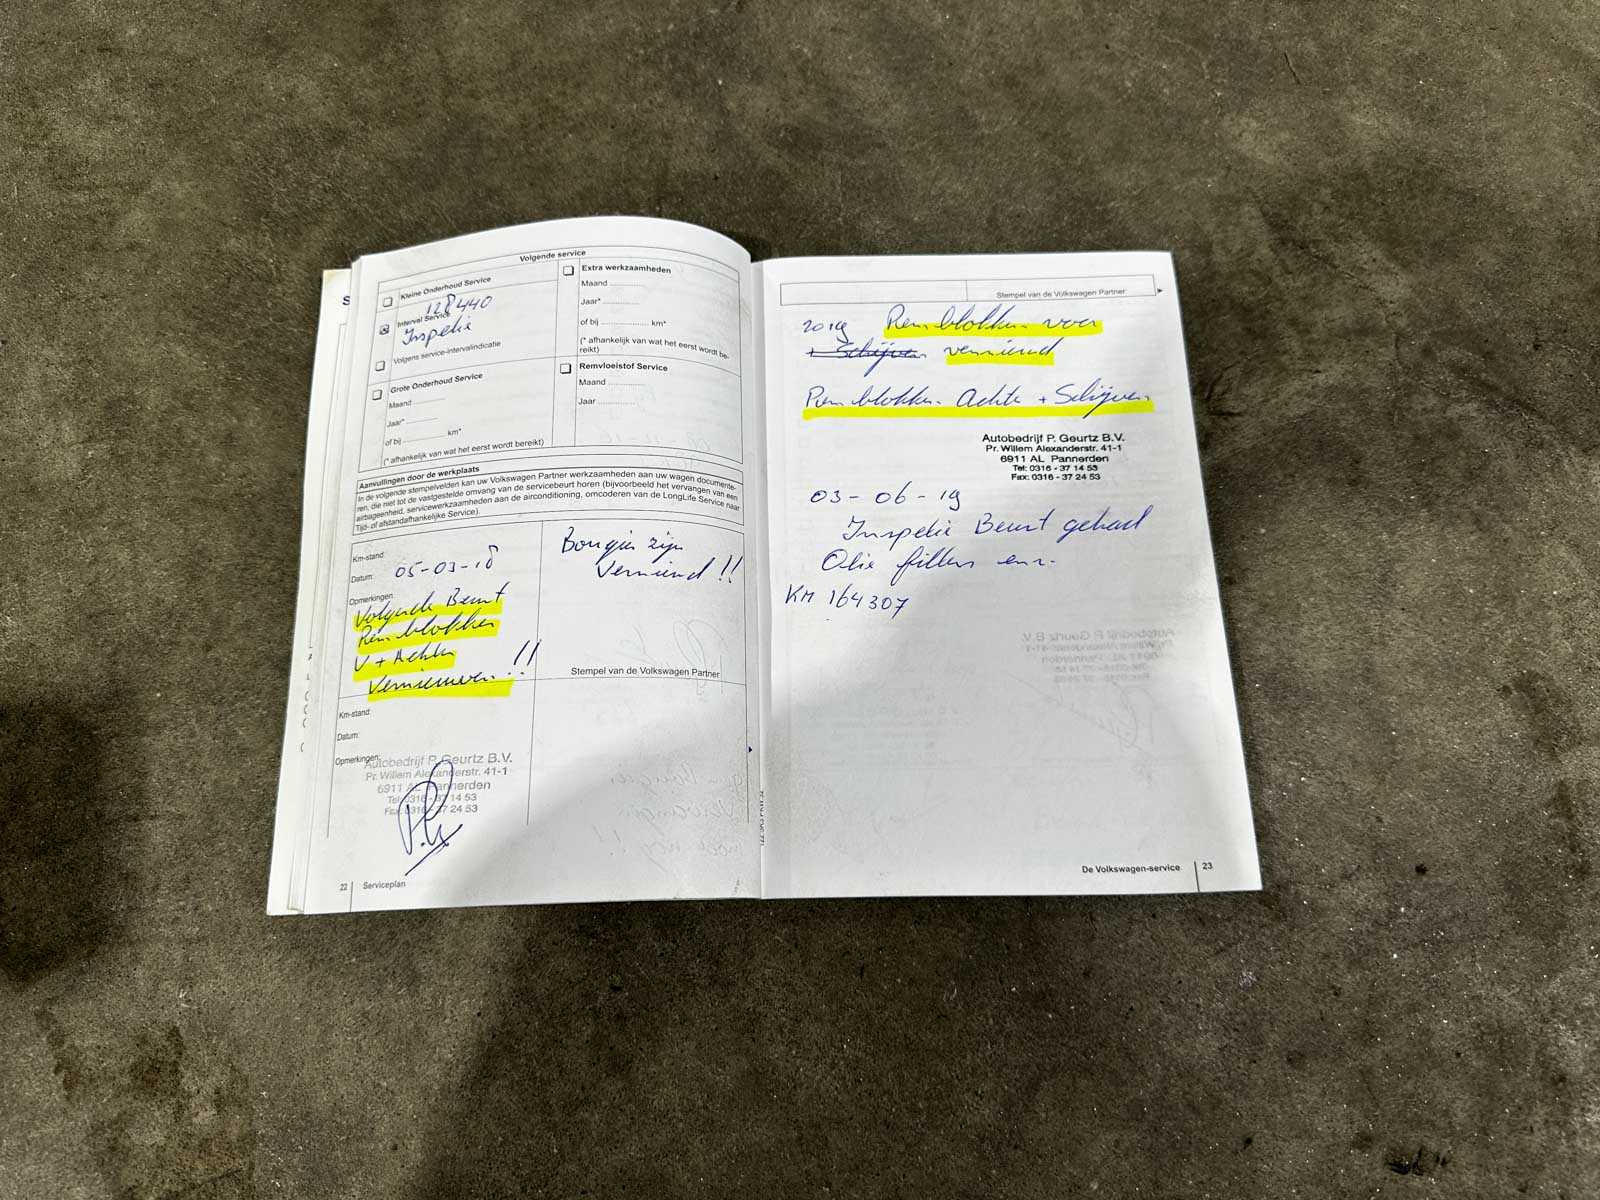 Volgende service
Kleine Onderhoud Service
128440
Interval Service
Inspektie
Volgens service-intervalindicatie
Grote Onderhoud Service
Maand ............
Jaar* ............
of bij ............ km*
(* afhankelijk van wat het eerst wordt bereikt)
Extra werkzaamheden
Maand ............
Jaar* ............
of bij ............ km*
(* afhankelijk van wat het eerst wordt be-
reikt)
Remvloeistof Service
Maand ............
Jaar ............
Aanvullingen door de werkplaats
In de volgende stempelvelden kan uw Volkswagen Partner werkzaamheden aan uw wagen documente-
ren, die niet tot de vastgestelde omvang van de servicebeurt horen (bijvoorbeeld het vervangen van een
airbageenheid, servicewerkzaamheden aan de airconditioning, omcoderen van de LongLife Service naar
Tijd- of afstandafhankelijke Service).
Km-stand:
Datum: 05-03-18
Opmerkingen:
Volgende Beurt
Remblokken
V + Achter
Vernieuwen !!
Bougies zijn
Vernieuwd !!
Stempel van de Volkswagen Partner
Km-stand:
Datum:
Opmerkingen:
Autobedrijf P. Geurtz B.V.
Pr. Willem Alexanderstr. 41-1
6911 AL Pannerden
Tel: 0316 - 37 14 53
Fax: 0316 - 37 24 53
22 Serviceplan
Stempel van de Volkswagen Partner
2019 Remblokken voor
+ Schijven vernieuwd
Remblokken Achter + Schijven
Autobedrijf P. Geurtz B.V.
Pr. Willem Alexanderstr. 41-1
6911 AL Pannerden
Tel: 0316 - 37 14 53
Fax: 0316 - 37 24 53
03-06-19
Inspektie Beurt gehad
Olie filters enz.
KM 164307
De Volkswagen-service 23